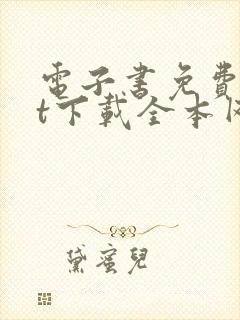 電子書免費
t下載全本
黛蜜兒